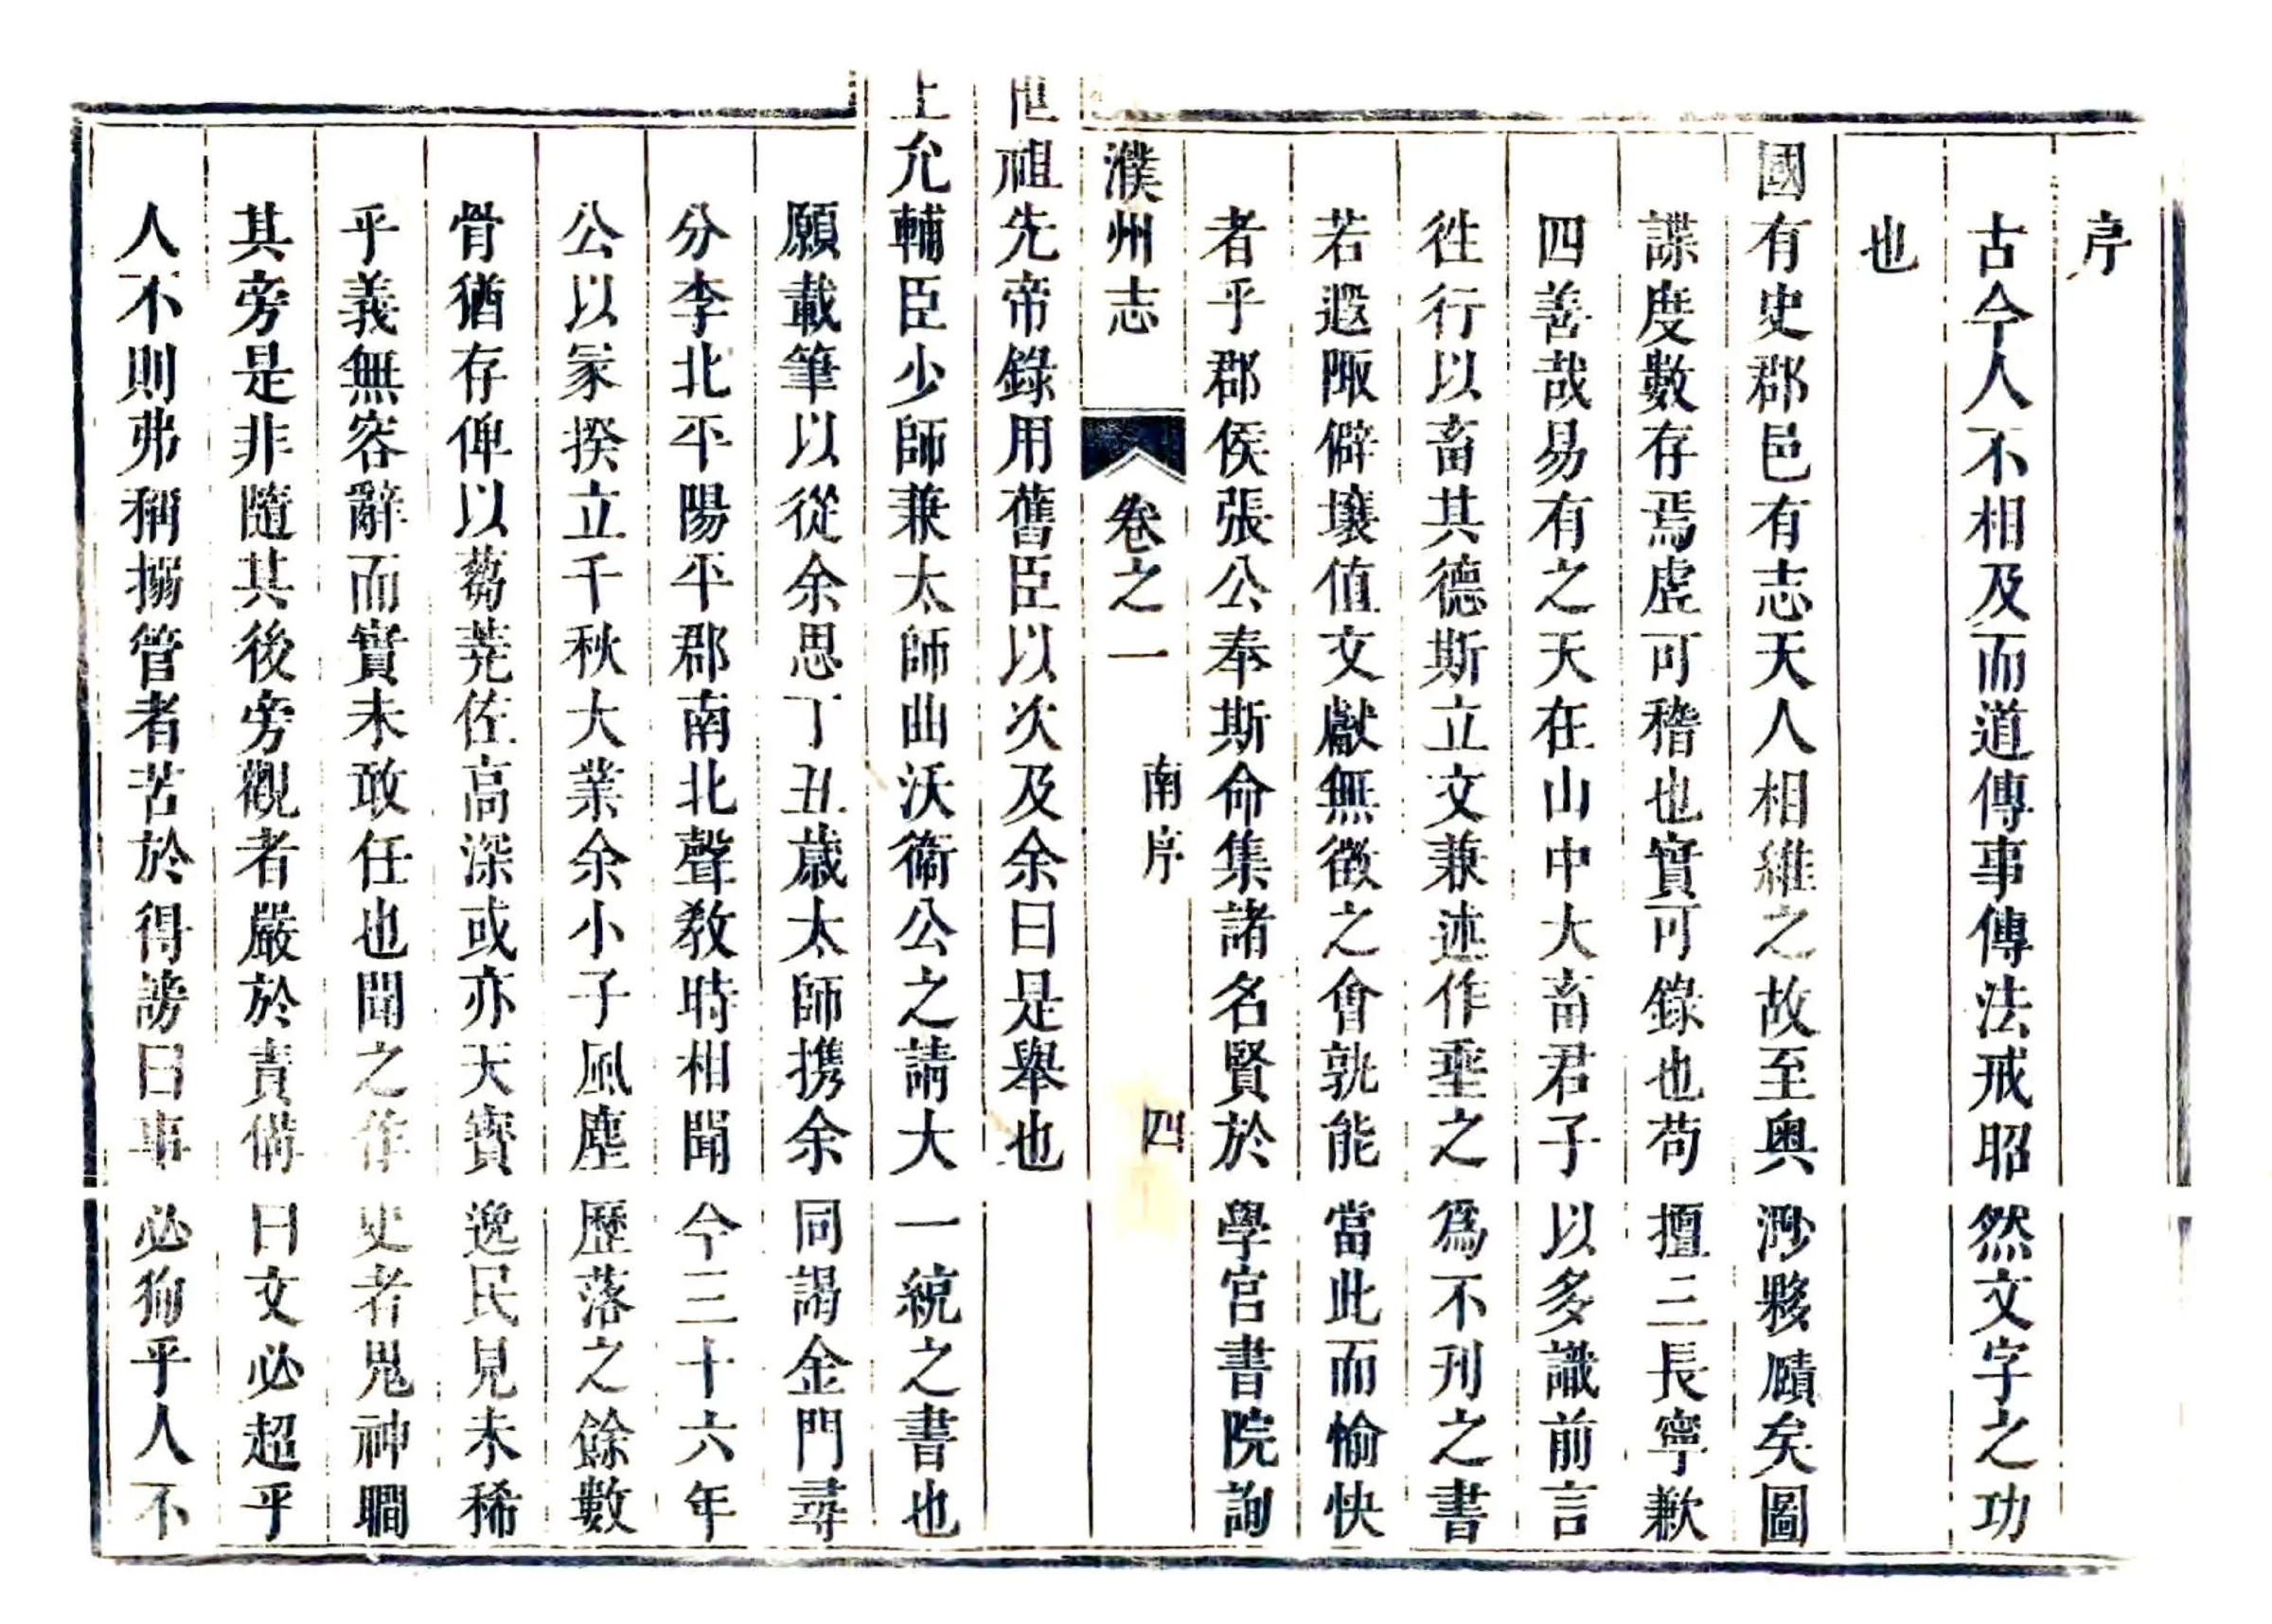 序
古今人不相及而道傳事傳法戒昭然文字之功
也
國有史郡邑有志天人相維之故至奧渺夥賾矣圖
諜度數存焉虛可稽也實可錄也苟擅三長寧歉
四善哉易有之天在山中大畜君子以多識前言
徃行以畜其德斯立文兼述作垂之為不刊之書
若遐陬僻壤值文獻無徵之會孰能當此而愉快
者乎郡侯張公奉斯命集諸名賢於學宫書院詢
濮州志 卷之一 南序 四
世祖先帝錄用舊臣以次及余曰是舉也
上允輔臣少師兼太師曲沃衞公之請大一統之書也
願載筆以從余思丁丑歲太師携余同謁金門尋
分李北平陽平郡南北聲敎時相聞今三十六年
公以家揆立千秋大業余小子風塵歷落之餘數
骨猶存俾以蒭蕘佐高深或亦天寶逸民見未稀
乎義無容辭而實未敢任也聞之作史者鬼神瞯
其旁是非隨其後旁觀者嚴於責備曰文必超乎
人不則弗稱搦管者苦於得謗曰事必狥乎人不